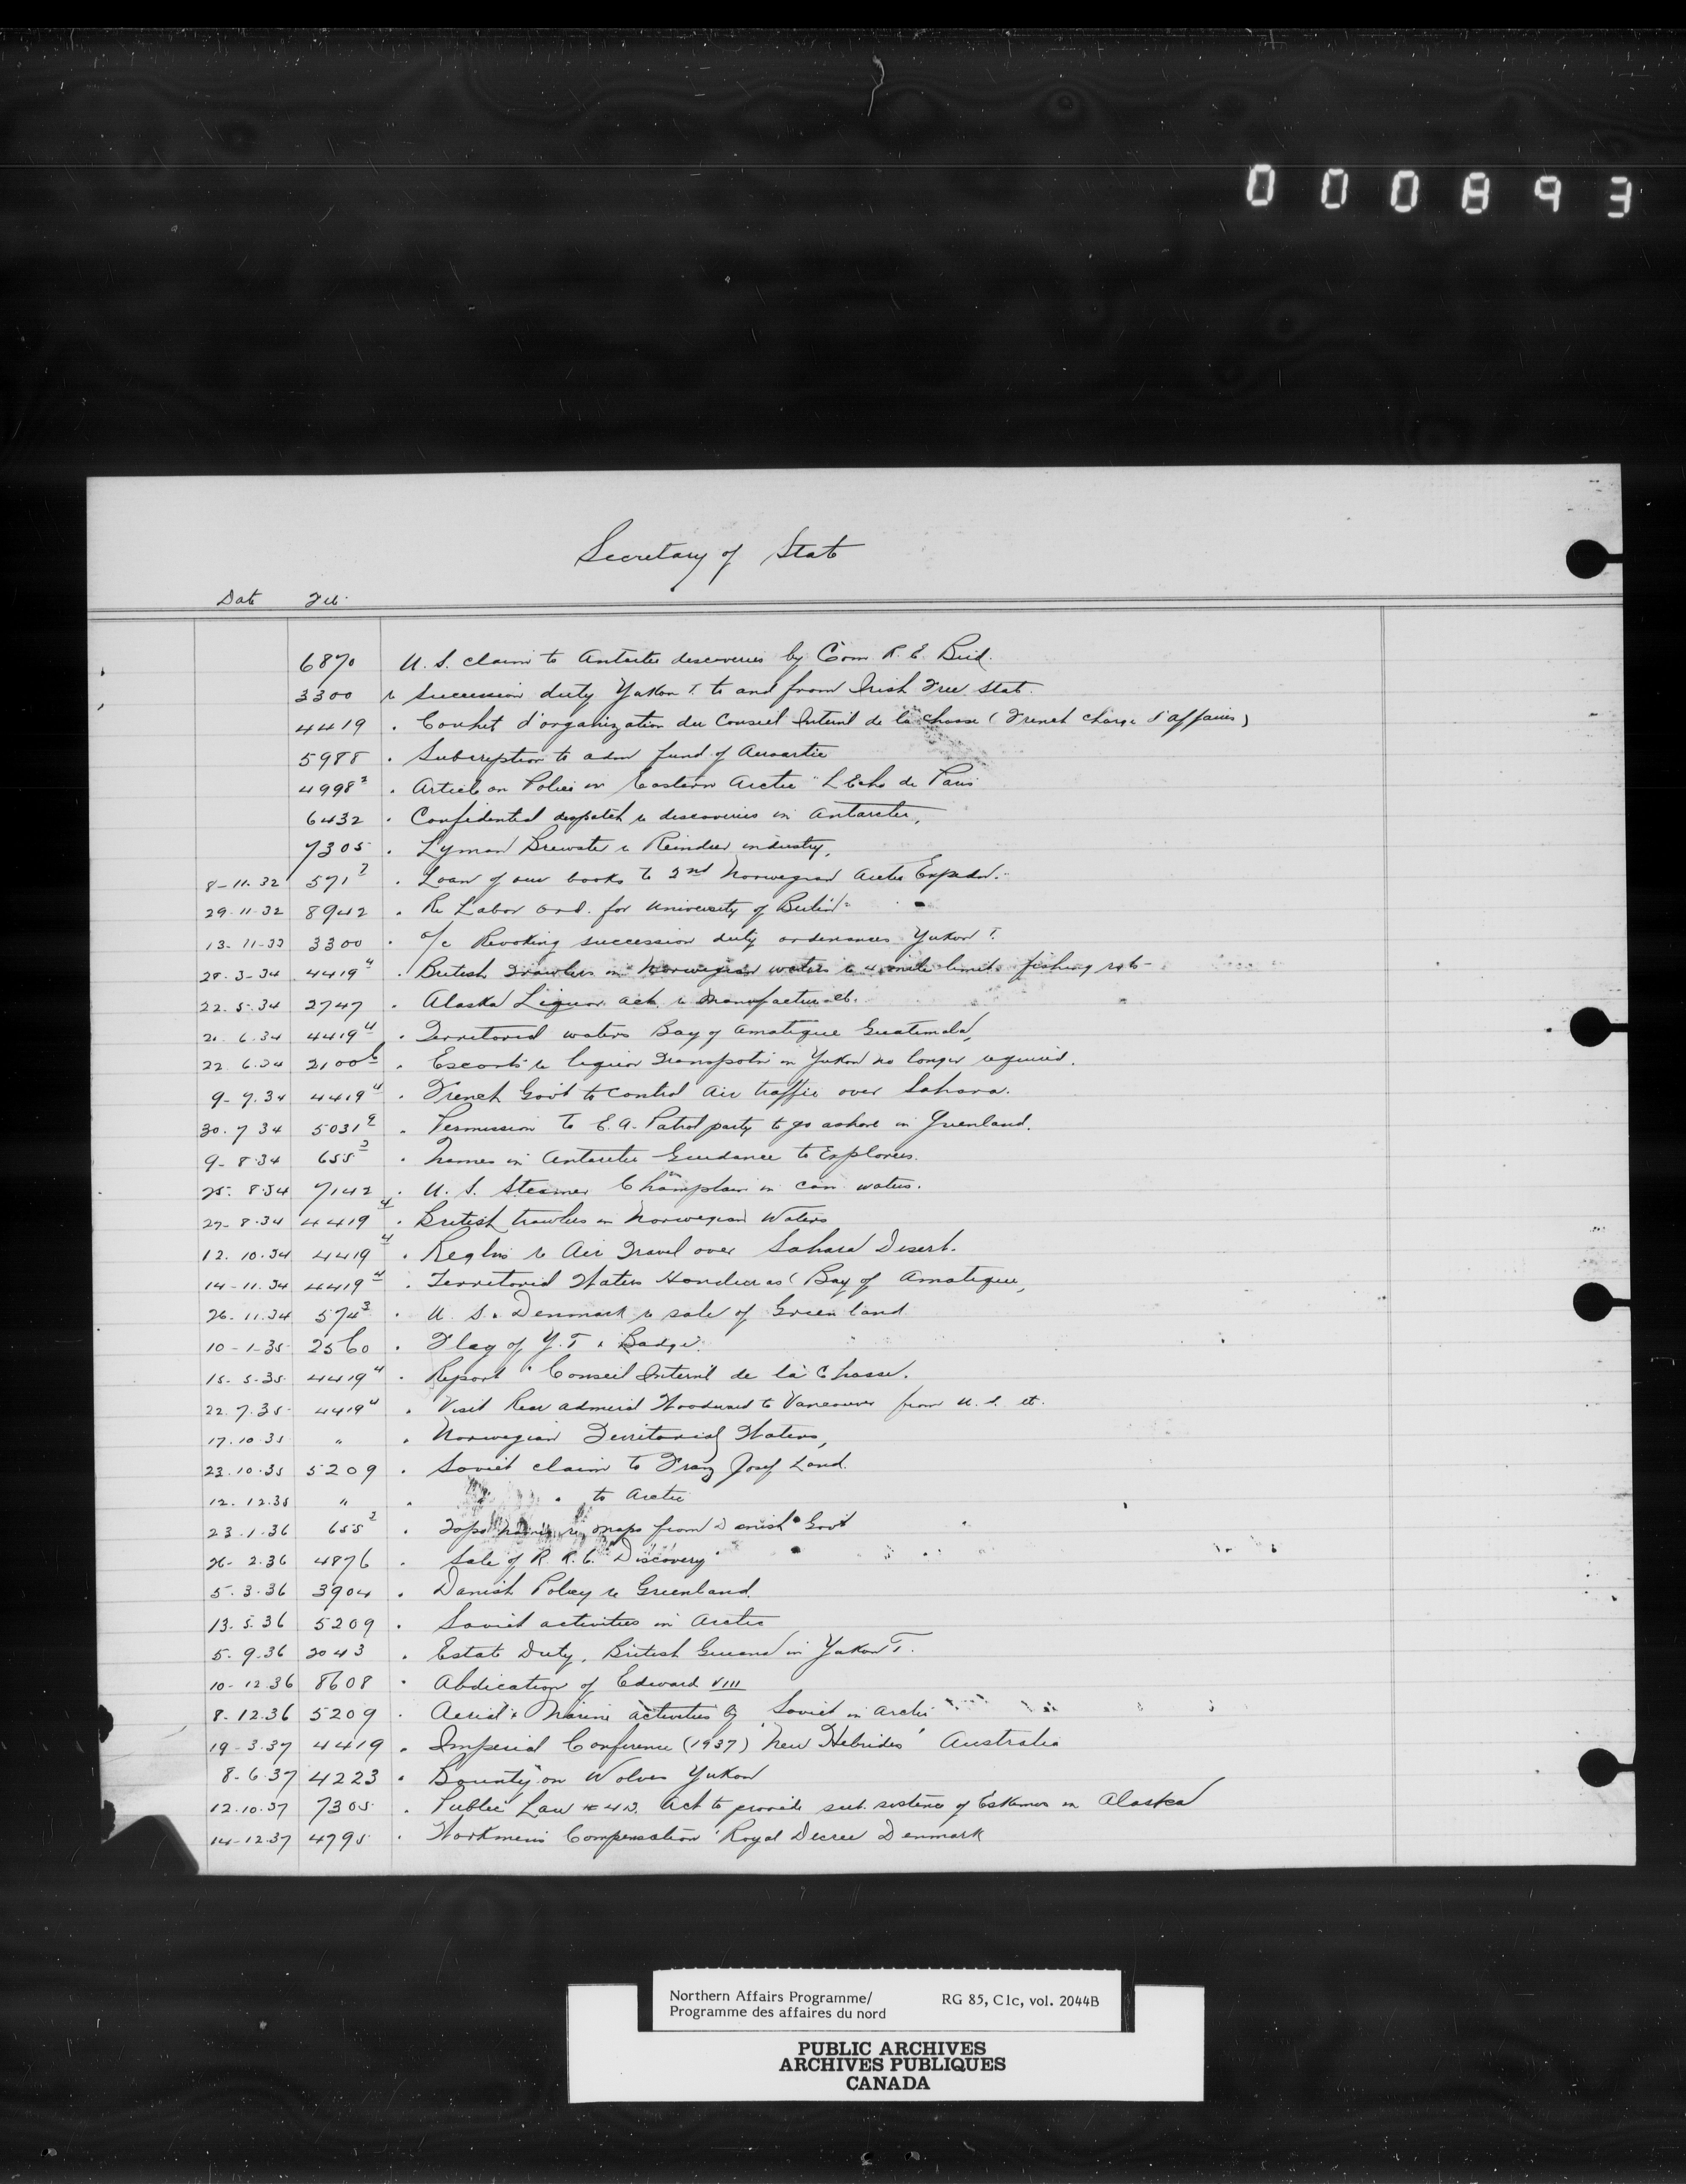 000893
Secretary of State
Date File
6870 U.S. claim to Antarctic discoveries by Com. R. E. Bird.
3300 re Succession duty Yukon T. to and from Irish Free State.
4419 . d'organization du Conseil Internl de la Chasse (French charge d'affaires)
5988 . Subscription to adm fund of
4998² . Article on Police in Eastern Arctic "L'Echo de Paris
6432 . Confidential despatch re discoveries in Antarctic,
7305 . Lyman Brewster re Reindeer industry,
8-11.32 571² . Loan of our books to 2nd Norwegian Arctic Expedn.
29.11.32 8942 . Re Labor ord. for University of Berlin
13-11-33 3300 . o/c Revoking succession duty ordinances Yukon T.
28.3-34 4419⁴ . British Trawlers in Norwegian waters re 4 mile limit fishing rgts
22.5.34 2747 . Alaska Liquor act re Manufacture etc.
21.6.34 4419⁴ . Territorial waters Bay of Amatique Guatemala,
22 6.34 2100 . Escorts re liquor Transpotn in Yukon no longer required.
9-7.34 4419⁴ . French Gov't to control Air traffic over Sahara.
30.7 34 5031² . Permission to E.A. Patrol party to go ashore in Greenland.
9-8.34 655² . Names in Antarctic Guidance to Explorers.
25.8.34 7142 . U.S. Steamer Champlain in Can. waters.
27-8.34 4419⁴ . British trawlers in Norwegian Waters
12.10.34 4419⁴ . Reglns re Air Travel over Sahara Desert.
14-11.34 4419⁴ . Territorial Waters Honduras (Bay of Amatique,
26.11.34 574³ . U.S. & Denmark re sale of Greenland
10-1-35 2560 . Flag of Y.T & Badge.
15-5-35 4419⁴ . Report "Conseil Internl de la Chasse.
22.7.35 4419⁴ . Visit Rear Admiral Woodward to Vancouver from U.S. etc.
17.10.35 " . Norwegian Territorial Waters,
23.10.35 5209 . Soviet claim to Franz Josef Land.
12.12.35 " . " " to Arctic
23.1.36 655² . Topo names re maps from Danish Govt
26-2.36 4876 . Sale of R.R.S. "Discovery"
5.3.36 3904 . Danish Policy re Greenland.
13.5.36 5209 . Soviet activities in Arctic
5.9.36 2043 . Estate Duty, British Guiana in Yukon T.
10-12.36 8608 . Abdication of Edward VIII
8-12.36 5209 . Aerial & Marine activities by Soviet in Arctic
19-3.37 4419 . Imperial Conference (1937) 'New Hebrides' Australia
8-6.37 4223 . Bounty on Wolves Yukon
12.10.37 7305 . Public Law #42. Act to provide subsistence of Eskimos in Alaska
14-12.37 4795 . Workmen's Compensation 'Royal Decree Denmark
Northern Affairs Programme/ RG 85, C1c, vol. 2044B
Programme des affaires du nord
PUBLIC ARCHIVES
ARCHIVES PUBLIQUES
CANADA